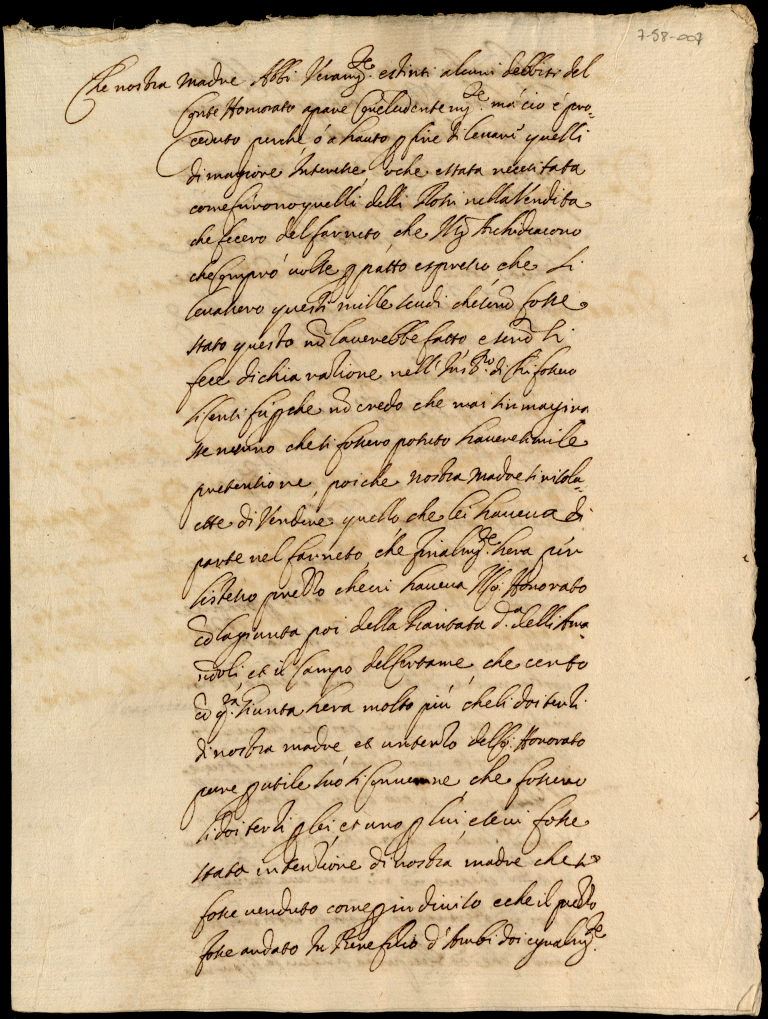 7-58-007
Che nostra Madre Abbi Veram.te estinti alcuni debbiti del
Conte Honorato apare Concludentem.te, má cio é pro-
ceduto perche, ó a hauto p fine di levarsi quelli
di magiore Interesse, o che estata necesitata
come furono quelli delli Rossi nella Vendita
che fecero del farneto, che Archidiacono
che compró volse p patto espresso che si
levassero questi mille scudi che senò fosse
stato questo nò l'averebbe fatto e senò si
fece dichiaratione nell' Ins.to di chi fossero
li p che nò credo che mai s'inmagina
sse nesuno che si fossero potuto havere simile
pretentione, poiche nostra Madre si risolu-
ette di Vendere quello che lei haveva di
parte nel farneto, che finalm.te hera pur
l'istesso prezzo che vi haveva Honorato
cò la giunta poi della Piantata d.a delli
et il Campo del che certo
cò q.ta Giunta hera molto piú che li doi terzi
di nostra madre, et un terzo del Honorato
pure p utile suó si Convenne, che fossero
li doi terzi p lei, et uno p lui, e se vi fosse
stata intentione di nostra madre che
fosse venduto come p indiviso e che il prezzo
fosse andato In Beneficio d'Ambi doi equalm.te